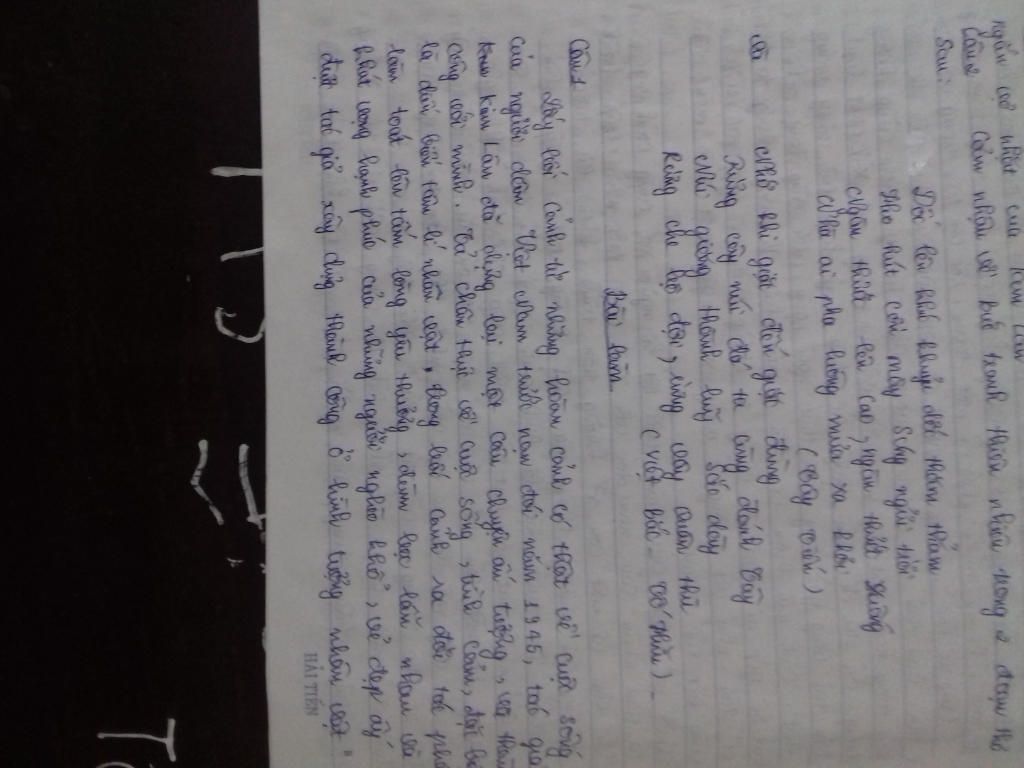 ngắn về nhất của
Câu 2 Cảm nhận về bức tranh thiên nhiên trong 2 đoạn thơ
sau:
Dốc lên khúc khuỷu dốc thăm thẳm
Heo hút cồn mây súng ngửi trời
Ngàn thước lên cao, ngàn thước xuống
Nhà ai pha luông mưa xa khơi
(Tây Tiến)
và Nhớ khi giặc đến giặc lùng
Rừng cây núi đá ta cùng đánh Tây
Núi giăng thành lũy sắt dày
Rừng che bộ đội, rừng vây quân thù
(Việt Bắc - Tố Hữu)
Bài làm
Câu 1
Lấy bối cảnh từ những hoàn cảnh có thật về cuộc sống
của người dân Việt Nam trước nạn đói năm 1945, tác giả
Kim Lân đã dựng lại một câu chuyện ấn tượng, và thành
công với mình. Từ chân thực về cuộc sống, tình cảm, đặc biệt
là diễn biến tâm lí nhân vật, trong bối cảnh ra đời tác phẩm
làm toát lên tấm lòng yêu thương, đùm bọc lẫn nhau và
khát vọng hạnh phúc của những người nghèo khổ, vẻ đẹp ấy
được tác giả xây dựng thành công ở hình tượng nhân vật "
HẢI TIẾN